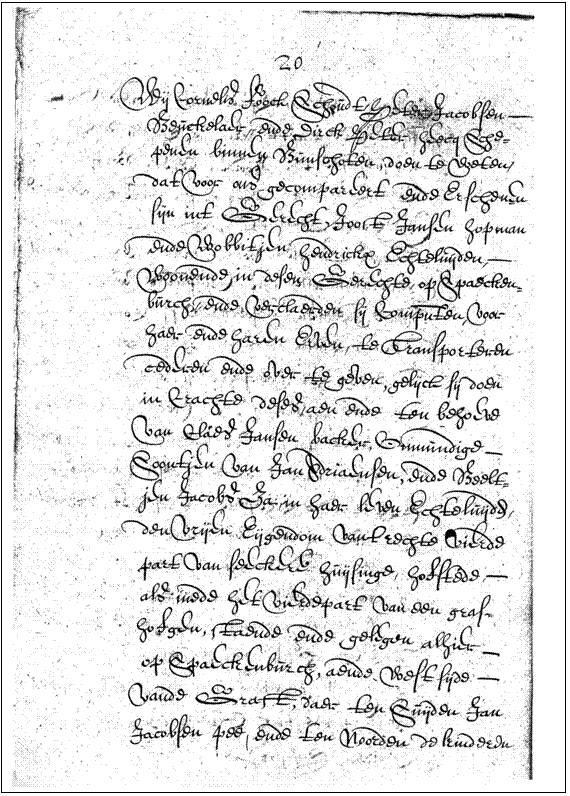 20
Wij Cornelis Foeck, Schout, Peter Jacobsen
Beuckelaer, ende Dirck Peter Heeij Sche-
penen binnen Bunschoten, doen te Weten,
dat Voor ons gecompareert ende Erschenen
sijn int Gerecht, Joost Jansen Hopman
ende Wobbitjen Hendrickx Echtelujden,
Woonende in desen Gerechte, op Spaecken-
burch, ende verclaerden sij Comp:nten, voor
haer ende haren Erven, te Transporteren
cederen ende over te geven, gelijck sij doen
in Crachte deses, aen ende ten behoeve
van Claes Jansen backer, Onmundige
Soontjen van Jan Driaensen, ende Beelt-
jen Jacobs Za: in haer leven Echteluijden,
den Vrijen Eijgendom van t rechte Vierde
part van seeckere huijsinge, hofstede
als mede het vierdepart van een gras-
hofgen, staende ende gelegen alhier
op Spaeckenburch, aende West sijde
vande Graft, daer ten Suijden Jan
Jacobsen pee, ende ten Noorden de kinderen